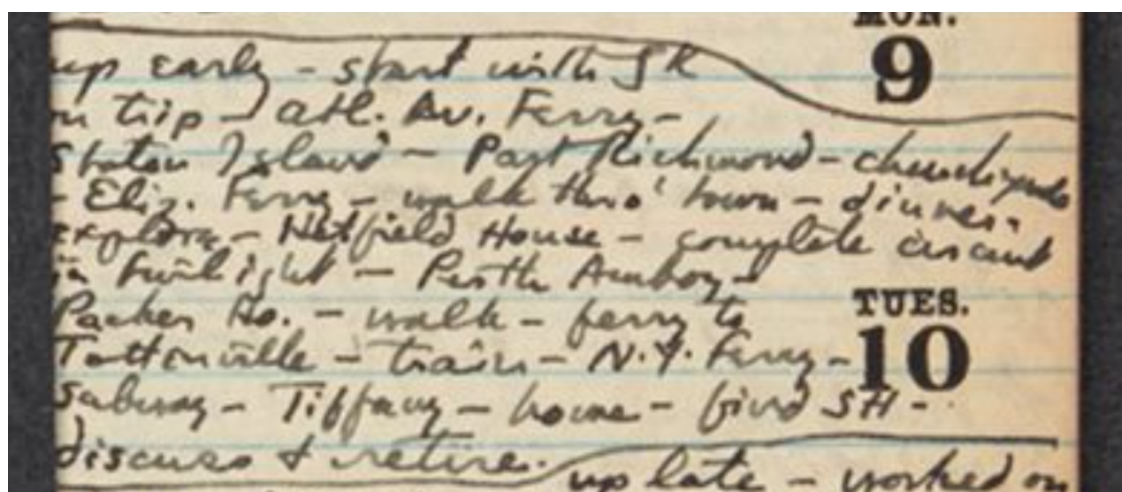 MON.
9
up early – start with SK
on trip – Atl. Av. Ferry –
Staten Island – Past Richmond – churchyards
– Eliz. Ferry – walk thro' town – dinner.
explore – Hetfield House – complete circuit
in twilight – Perth Amboy –
Parker Ho. – walk – ferry to
TUES.
10
Tottenville – train – N.Y. Ferry –
subway – Tiffany – home – find SH –
discuss & retire.
up late – worked on